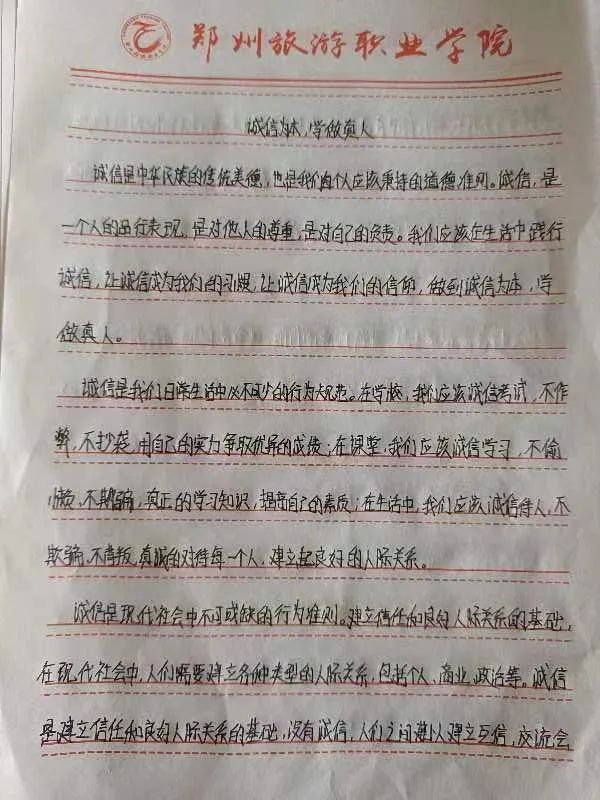 郑州旅游职业学院
诚信为本,学做真人
诚信是中华民族的传统美德,也是我们每个人应该秉持的道德准则。诚信,是
一个人的品行表现,是对他人的尊重,是对自己的负责。我们应该在生活中践行
诚信,让诚信成为我们的习惯,让诚信成为我们的信仰,做到诚信为本,学
做真人。
诚信是我们日常生活中必不可少的行为规范。在学校,我们应该诚信考试,不作
弊,不抄袭,用自己的实力争取优异的成绩;在课堂,我们应该诚信学习,不偷
懒,不欺骗,真正的学习知识,提高自己的素质;在生活中,我们应该诚信待人,不
欺骗,不背叛,真诚的对待每一个人,建立起良好的人际关系。
诚信是现代社会中不可或缺的行为准则。建立信任和良好人际关系的基础,
在现代社会中,人们需要建立各种类型的人际关系,包括个人、商业、政治等。诚信
是建立信任和良好人际关系的基础,没有诚信,人们之间难以建立互信,交流会